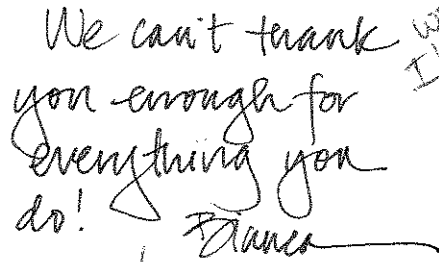 We can't thank
you enough for
everything you
do!
Bianca